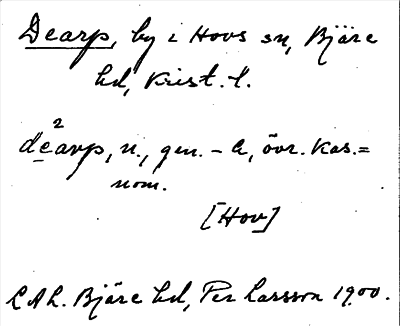 Dearp, by i Hovs sn, Bjäre
hd, Krist. l.
2
dearp, n., gen. - a, övr. kas. =
nom.
[Hov]
LAL. Bjäre hd, Per Larsson 1900.